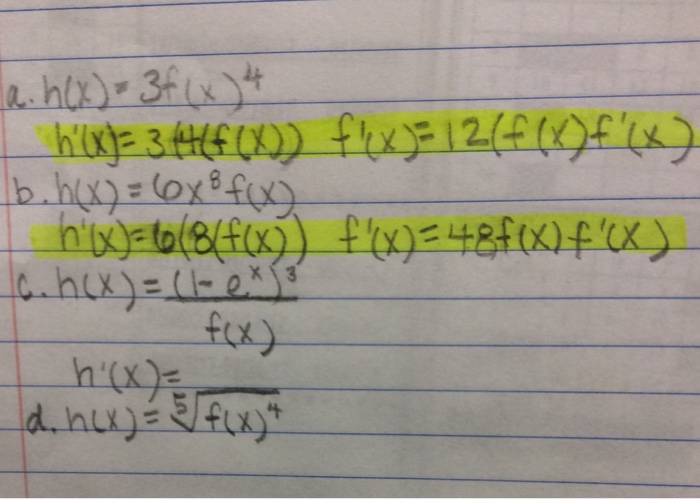 a. h(x) = 3f(x)^4
h'(x) = 3(4(f(x)) f'(x) = 12(f(x)f'(x)
b. h(x) = 6x^8 f(x)
h'(x) = 6(8(f(x)) f'(x) = 48f(x)f'(x)
c. h(x) = (1-e^x)^3
f(x)
h'(x) =
d. h(x) = ⁵√f(x)^4